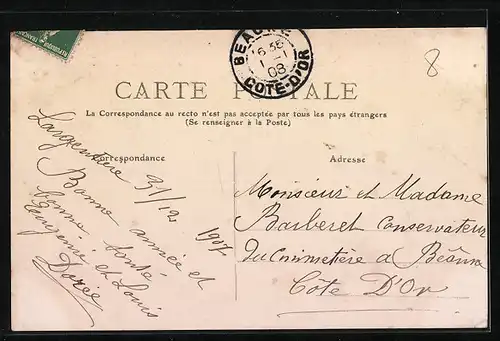 BEAUNE
16 35
1 - 1
08
COTE-D'OR
8
CARTE POSTALE
La Correspondance au recto n'est pas acceptée par tous les pays étrangers
(Se renseigner à la Poste)
Correspondance
Largentière 31/12 1907
Bonne année et
bonne santé
Eugénie et Louis
Dorée
Adresse
Monsieur et Madame
Barberet conservateur
du cimmetière a Beâune
Cote D'Or